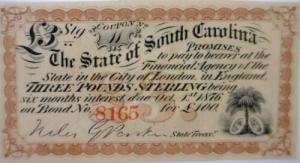 £3 Stg Coupon No 11
The State of South Carolina
PROMISES
to pay to bearer at the
Financial Agency of the
State in the City of London, in England,
THREE POUNDS STERLING being
six months interest due Oct. 1st 1876
on Bond No. 8165 for £100.
State Treasr.